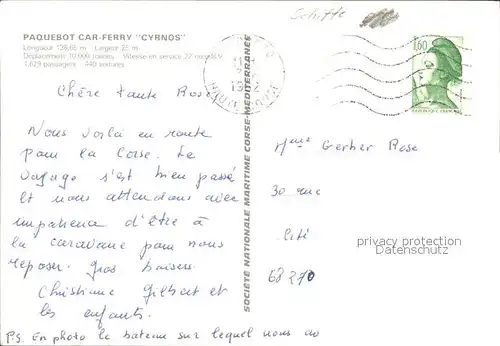 Schiffe
PAQUEBOT CAR-FERRY "CYRNOS"
Longueur 128,65 m Largeur 25 m
Déplacement 10.000 tonnes Vitesse en service 22 nœuds
1.629 passagers 440 voitures
1,60
Chère tante Rose
Nous voilà en route
pour la Corse. Le
voyage s'est bien passé
et nous attendons avec
impatience d'être à
la caravane pour nous
reposer. Gros baisers
Christiane Gilbert et
les enfants.
P.S. En photo le bateau sur lequel nous
SOCIÉTÉ NATIONALE MARITIME CORSE-MÉDITERRANÉE
Mme Gerber Rose
30 rue
Cité
68270
privacy protection
Datenschutz